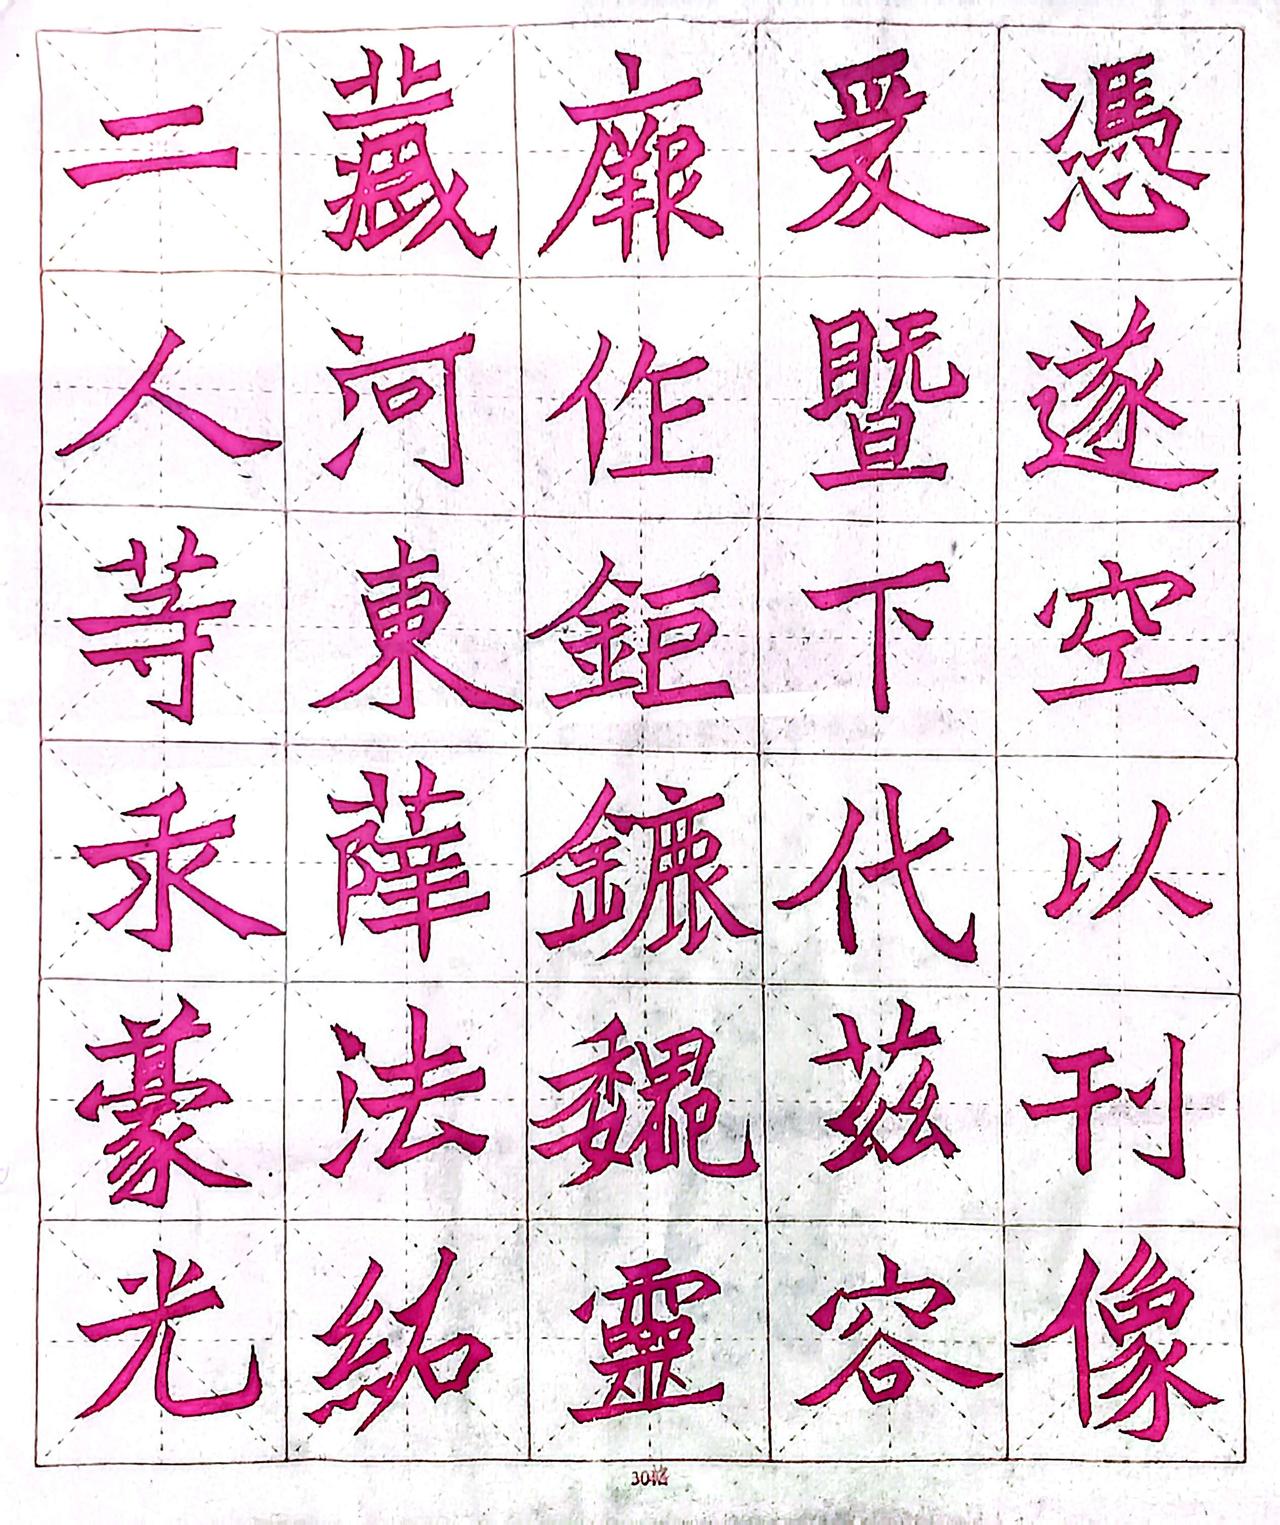 憑遂空以刊像
爰暨下代茲容
廓作鉅鏕魏靈
藏河東薛法紹
二人等求豪光
30格